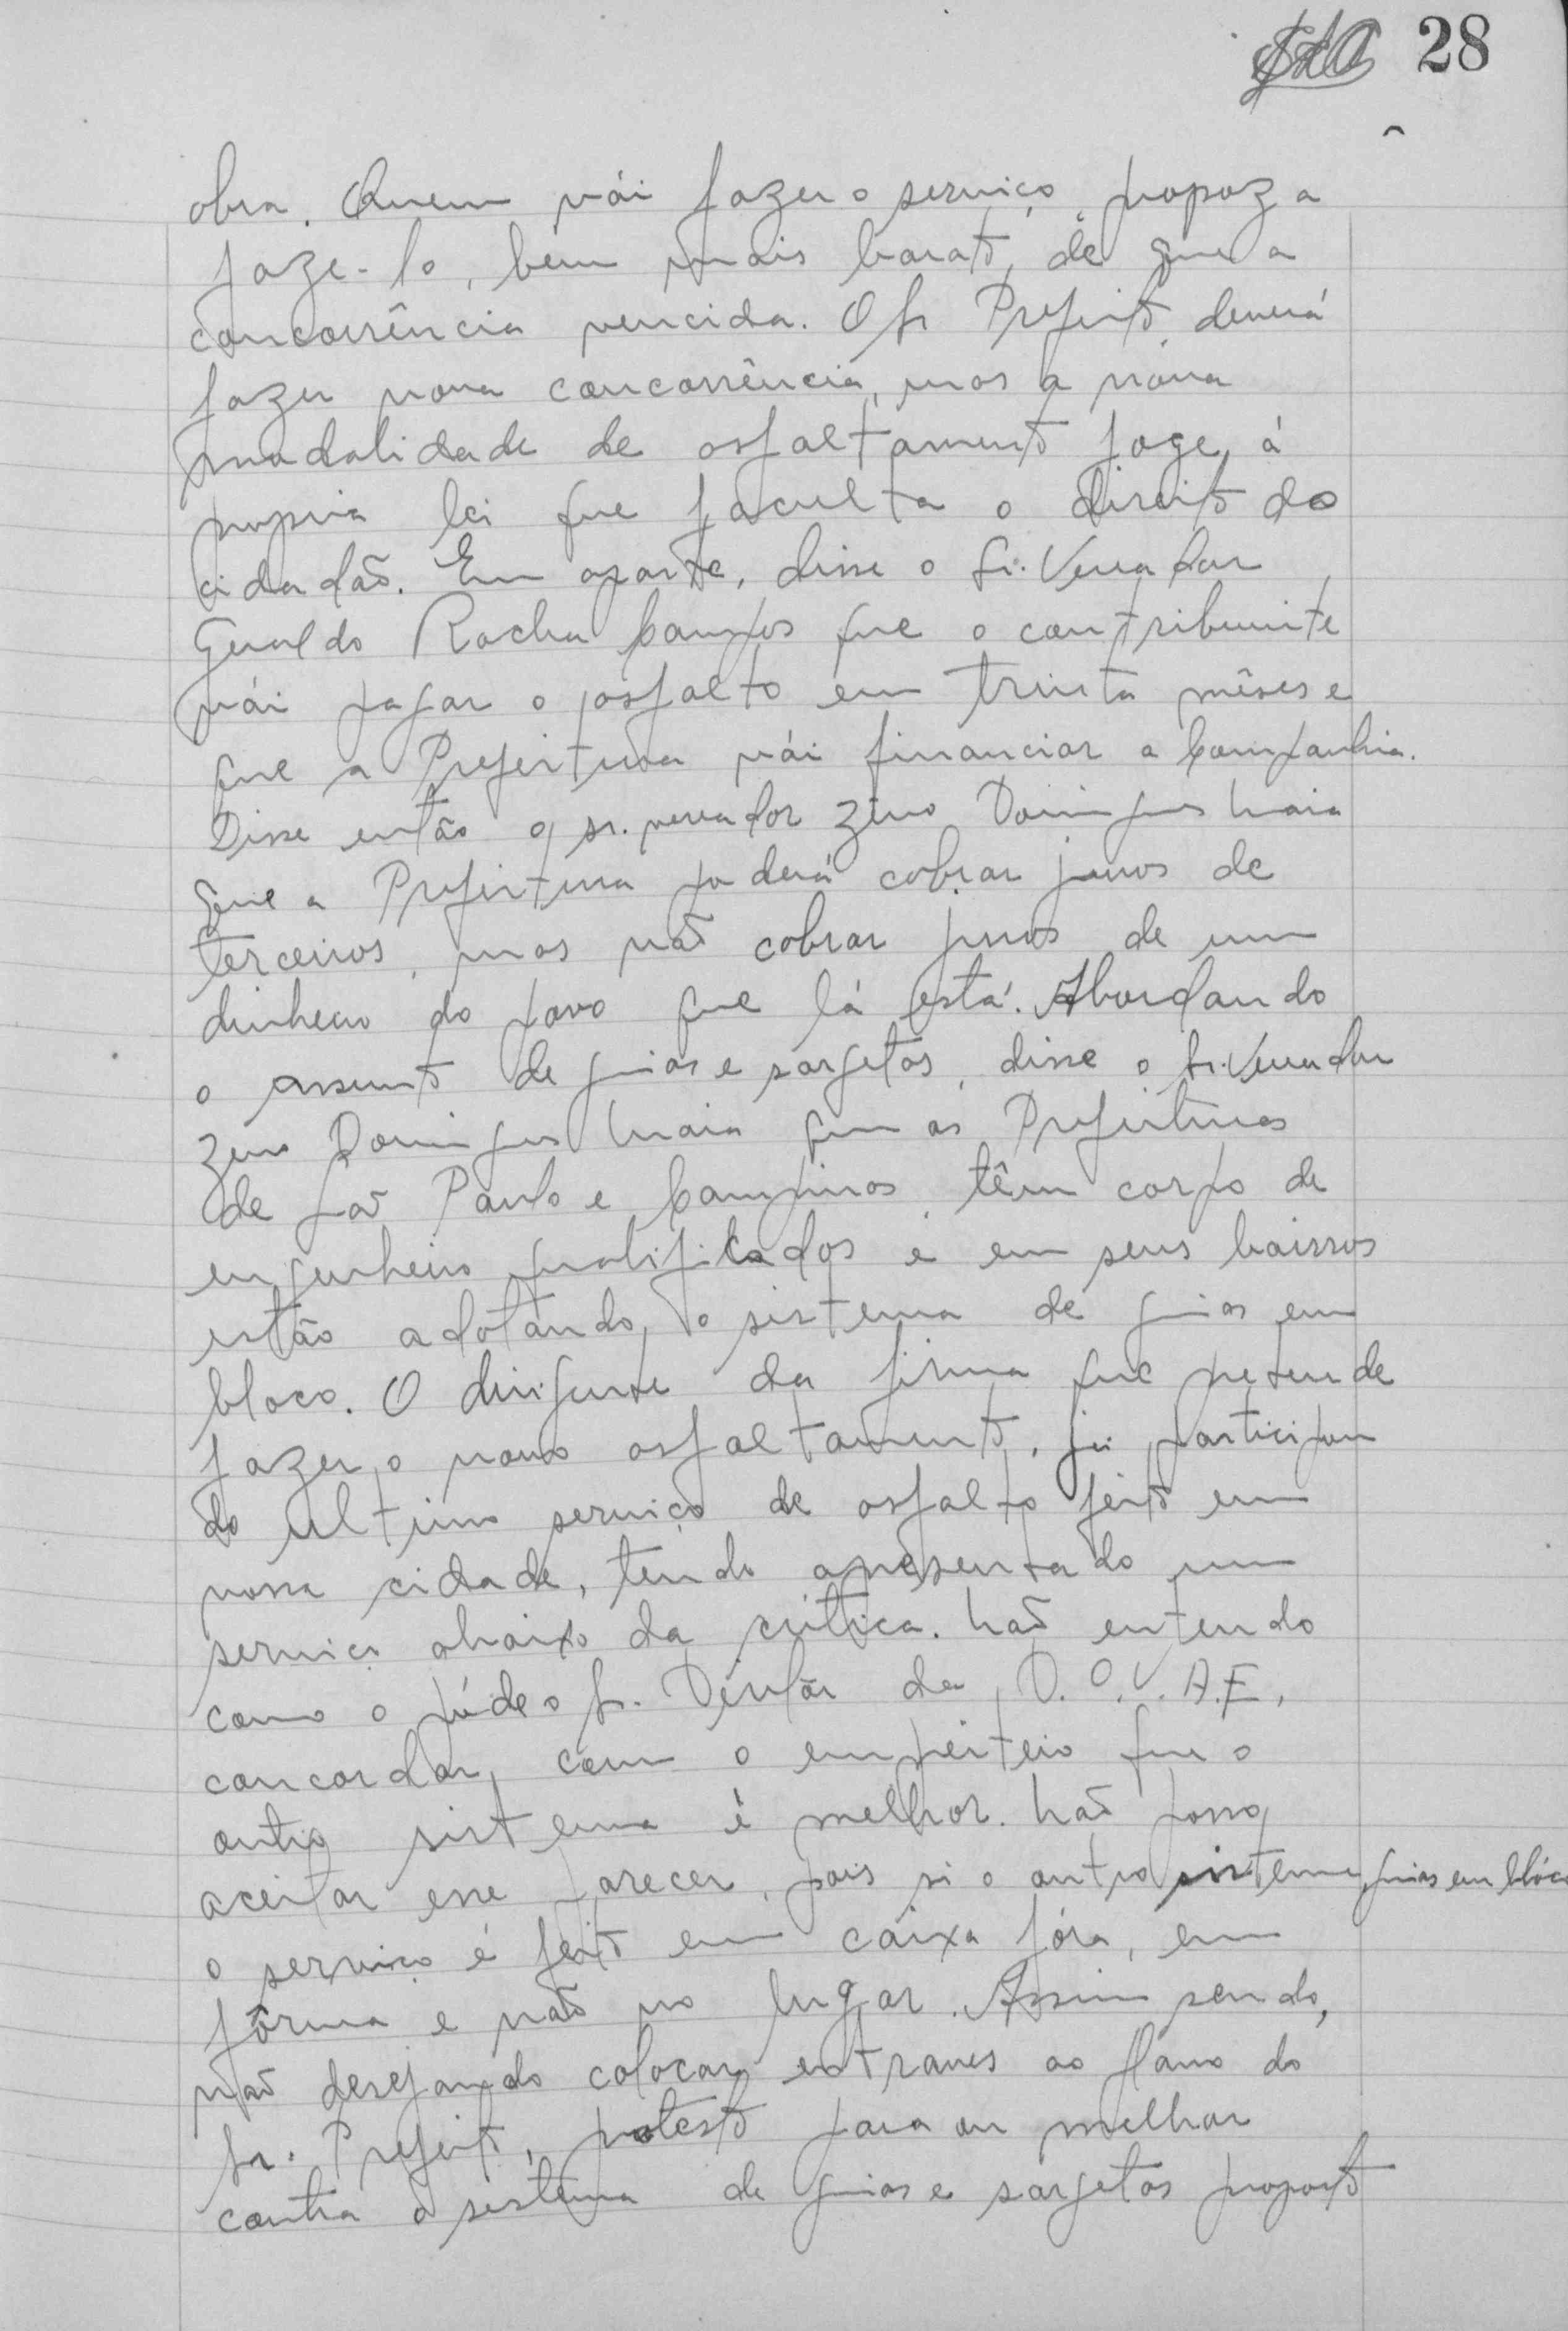 28
obra. Quem vái fazer o serviço, propoz a
faze-lo, bem mais barato, de que a
concorrência vencida. O Sr Prefeito, deverá
fazer nova concorrência, mas a nova
modalidade de asfaltamento foge, á
propria lei que faculta o direito do
cidadão. Em aparte, disse o Sr. Vereador
Geraldo Rocha Campos que o contribuinte
vái pagar o asfalto em trinta mêses e
que a Prefeitura vái financiar a Companhia.
Disse então o sr. vereador Zeno Domingues Maia
que a Prefeitura poderá cobrar juros de
terceiros, mas não cobrar juros de um
dinheiro do povo que lá está. Abordando
o assunto de guias e sargetas, disse o Sr. Vereador
Zeno Domingues Maia que as Prefeituras
de São Paulo e Campinas, têm corpo de
engenheiro qualificados e em seus bairros
estão adotando, o sistema de guias em
bloco. O dirigente da firma que pretende
fazer, o novo asfaltamento, já participou
do ultimo serviço de asfalto feito em
nossa cidade, tendo apresentado um
serviço abaixo da critica. Não entendo
como o póde o Sr. Diretor da D.O.V.A.E,
concordar, com o empreiteiro que o
outro sistema é melhor. Não posso
aceitar esse parecer, pois si o outro sistema, guias em blóco
o serviço é feito em caixa fóra, em
fôrma e não no lugar. Assim sendo,
não desejando colocar entraves ao plano do
Sr. Prefeito, protesto para um melhor
contra o sistema de guias e sargetas proposto